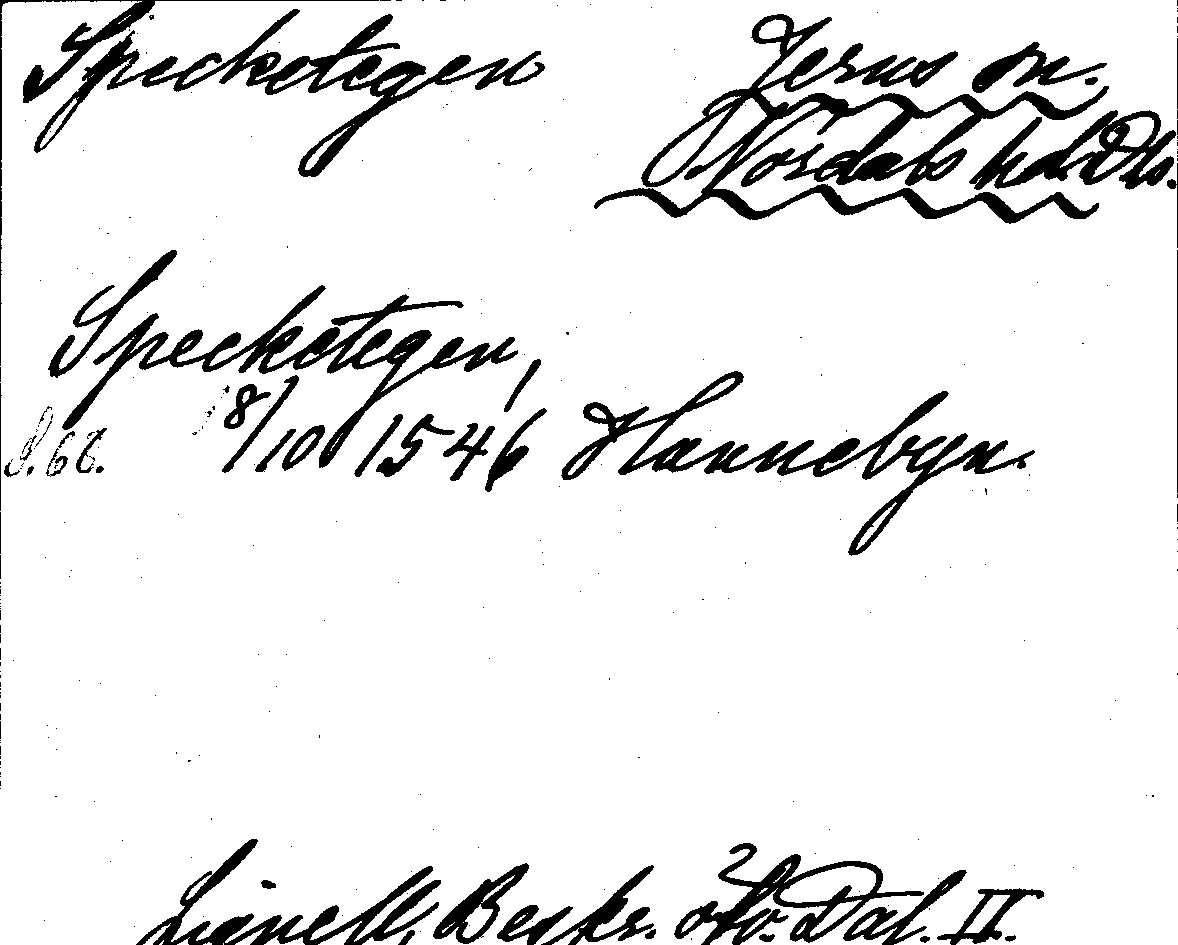 Speckotegen Jerns sn.
Nordals hd. Dls.
Speckotegen,
s. 68. 8/10 1546 Hannebyn.
Lignell, Beskr. öfv. Dal. II.